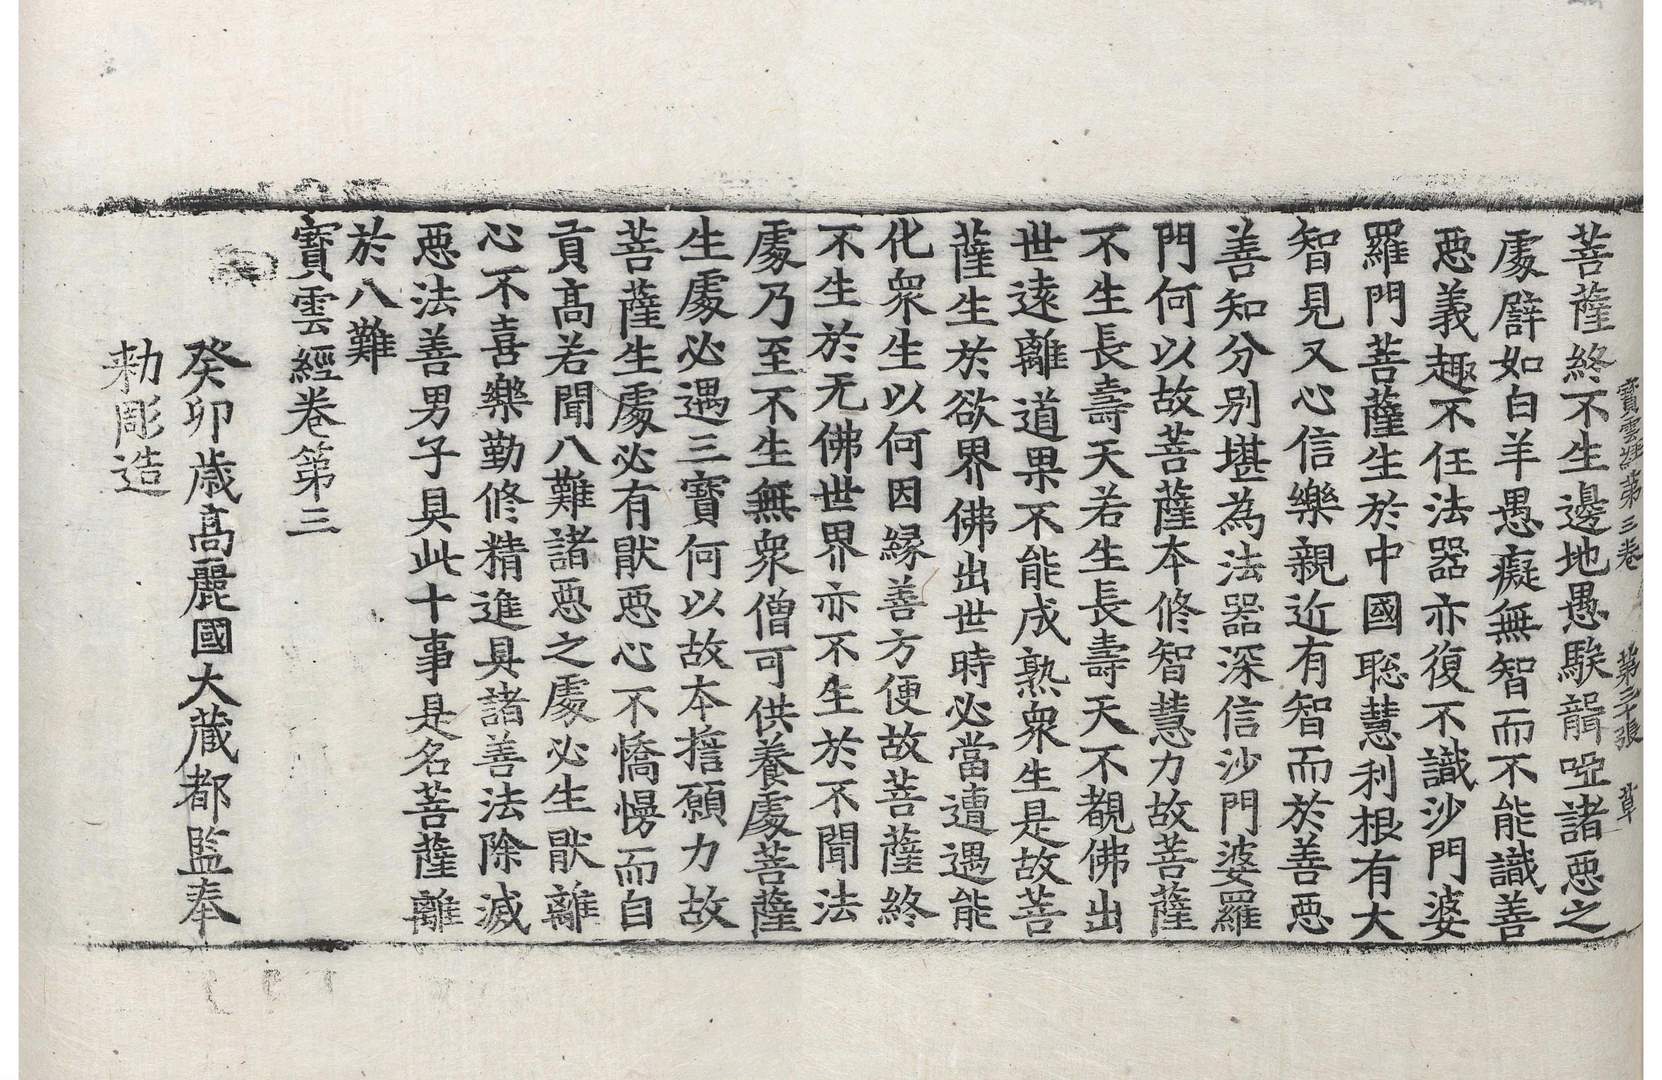 寶雲經第三卷 第三十張 草
菩薩終不生邊地愚騃聾啞諸惡之
處譬如白羊愚癡無智而不能識善
惡義趣不任法器亦復不識沙門婆
羅門菩薩生於中國聡慧利根有大
智見又心信樂親近有智而於善惡
善知分別堪為法器深信沙門婆羅
門何以故菩薩本修智慧力故菩薩
不生長壽天若生長壽天不覩佛出
世遠離道果不能成熟衆生是故菩
薩生於欲界佛出世時必當遭遇能
化衆生以何因縁善方便故菩薩終
不生於无佛世界亦不生於不聞法
處乃至不生無衆僧可供養處菩薩
生處必遇三寶何以故本誓願力故
菩薩生處必有猒惡心不憍慢而自
貢高若聞八難諸惡之處必生猒離
心不喜樂勤修精進具諸善法除滅
惡法善男子具此十事是名菩薩離
於八難
寶雲經卷第三
癸卯歳高麗國大藏都監奉
勅彫造